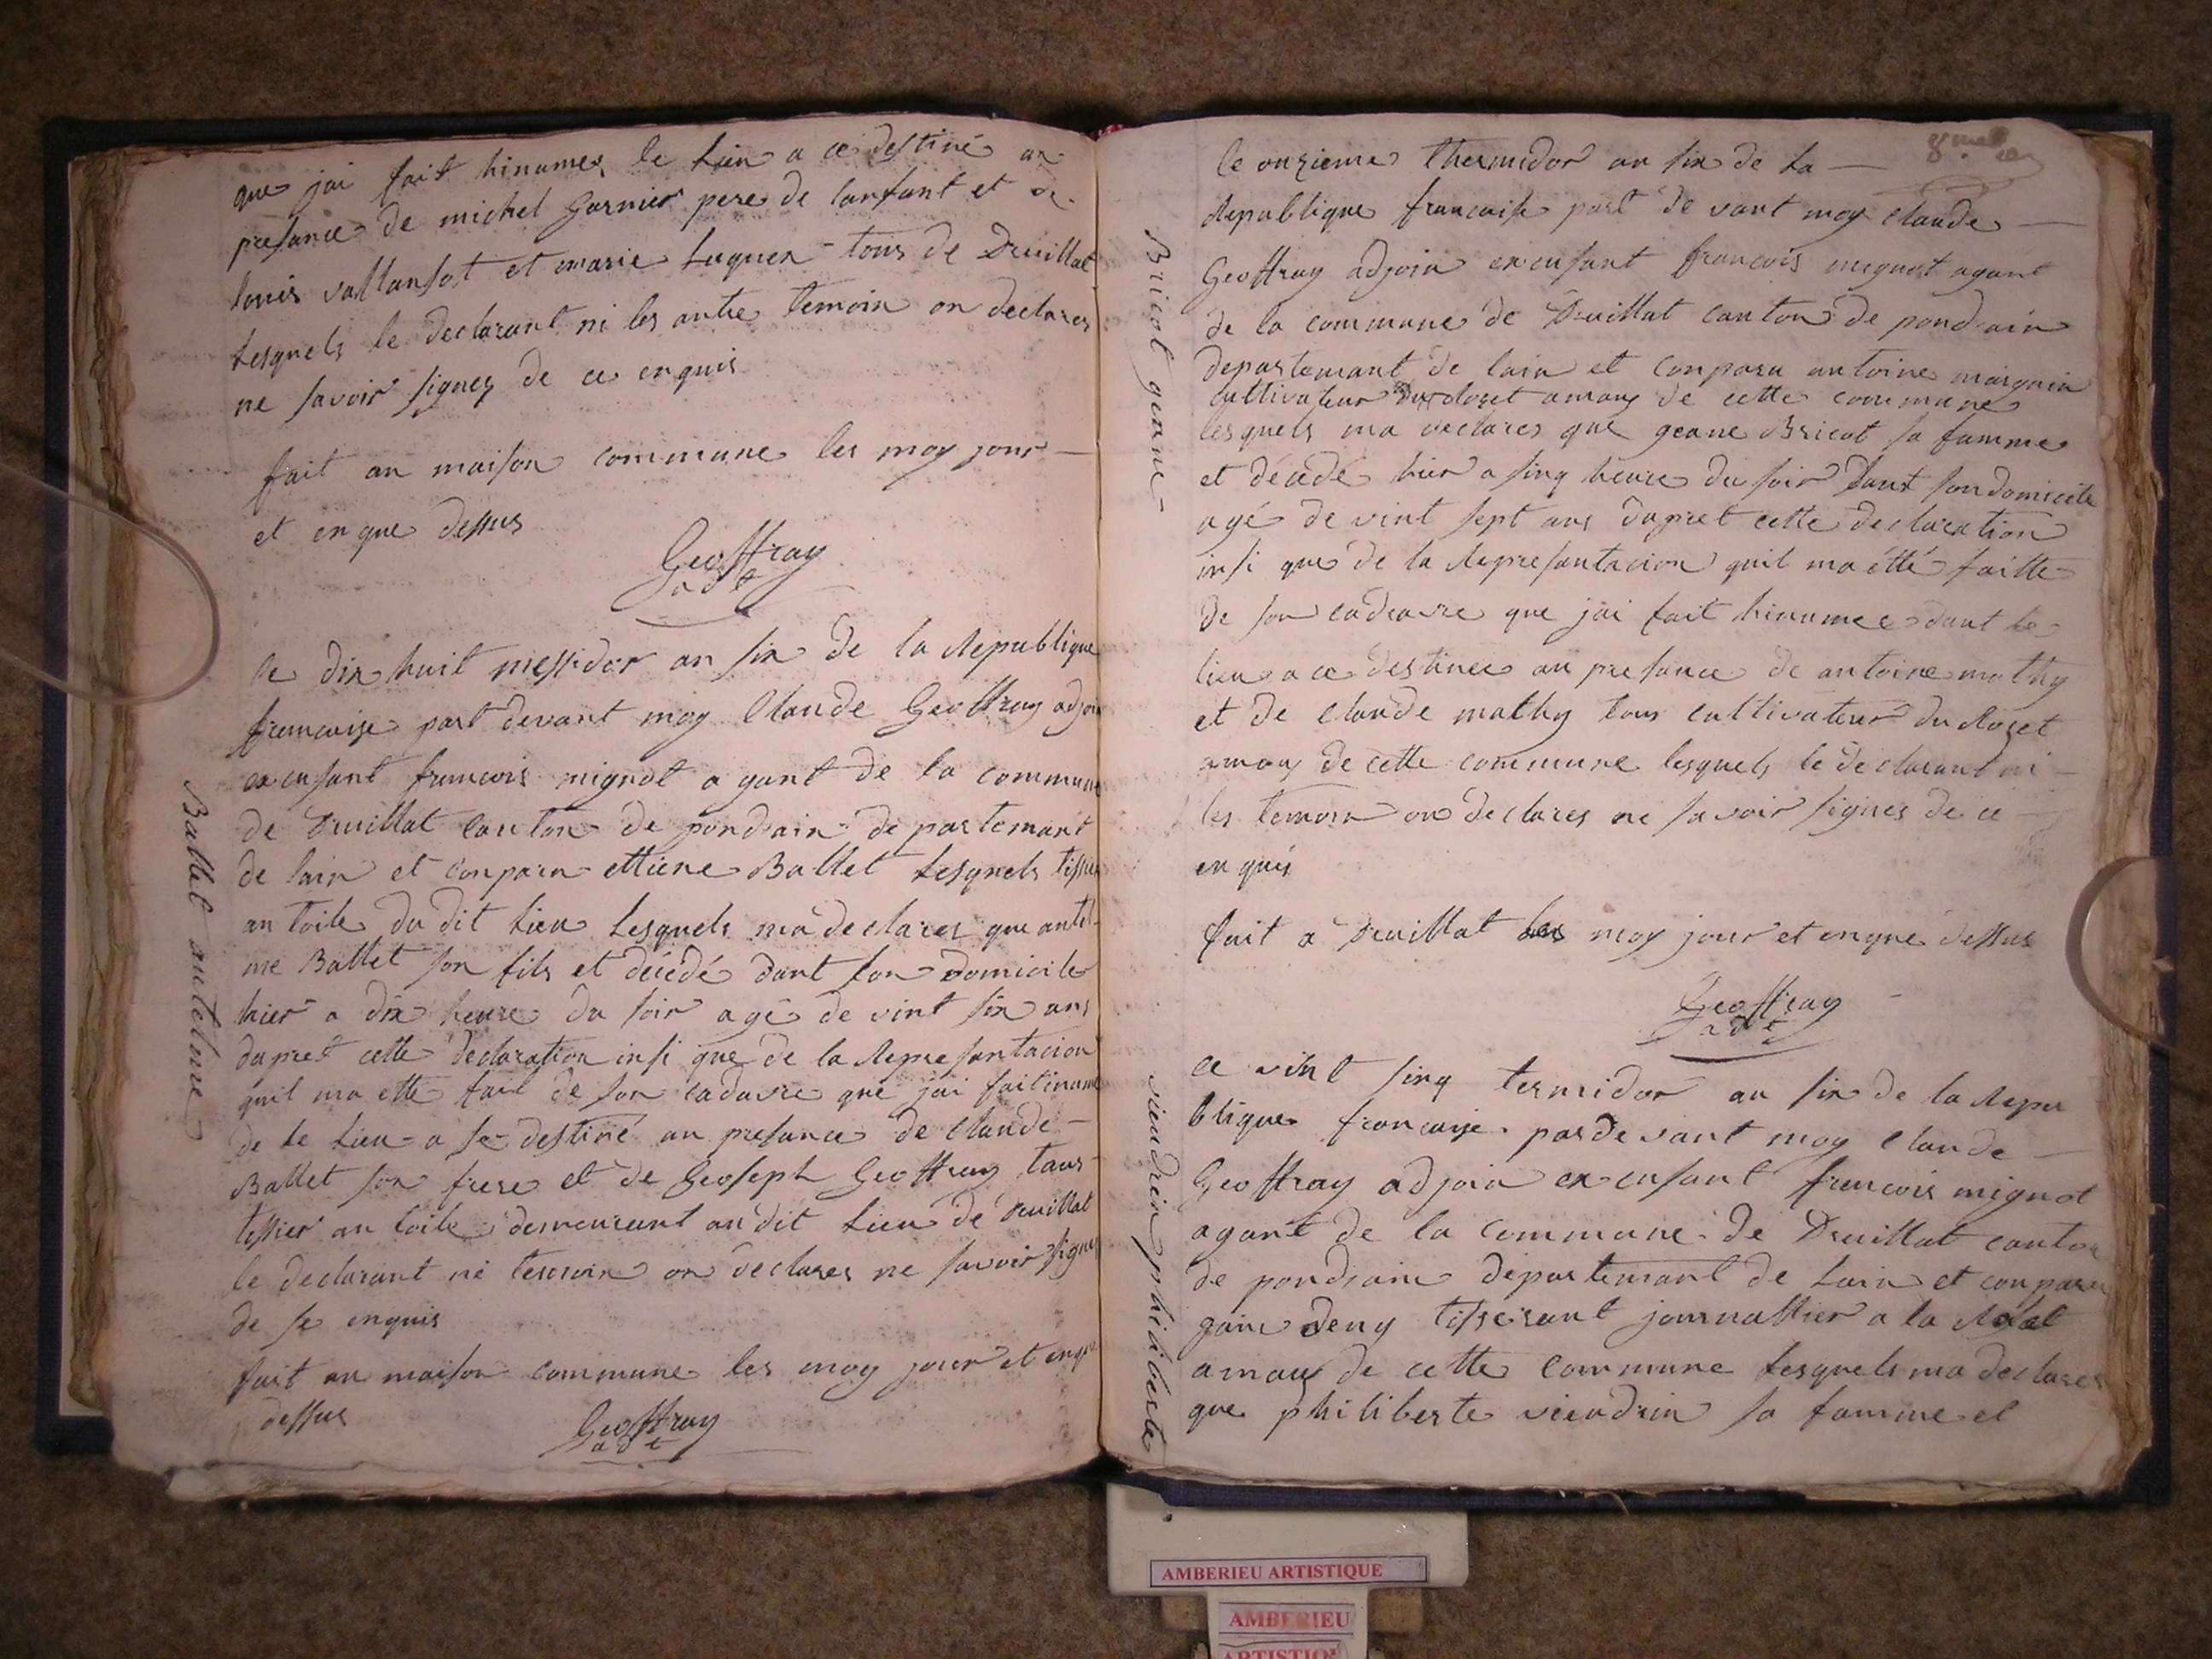 que jai fait hinumer le lieu a ce destiné an
presance de michel Garnier pere de lanfant et de
louis vallansot et marie luquen tous de Druillat
lesquels le declarant ni les autre temoin on declarer
ne savoir signez de ce enquis
fait an maison commune les moy jour
et en que dessus
Geoffray
adt
le dix huit messidor an six de la Republique
francaise part devant moy Claude Geoffray adjoin
en ensant francois mignot agant de la commune
de Druillat canton de pondain departemant
de lain et conparu ettiene Ballet lesquels tissier
an toile du dit lieu lesquels ma declarer que antel
me Ballet son fils et décédé dant son domicile
hier a dix heure du soir agé de vint six ans
dapret cette declaration insi que de la Represantacion
quil ma ette fait de son cadavre que jai fait inume
de le lieu a se destiné an presance de Claude
Ballet son frere et de Geoseph Geoffray tous
tissier an toile demeurant au dit lieu de Druillat
le declarant ni temoin on declarer ne savoir signer
de se enquis
fait an maison commune les moy jour et enque
dessus
Geoffray
adt
Ballet antelme
le onzieme thermidor an six de la
Republique francaise part de vant moy Claude
Geoffray adjoin en ensant francois mignot agant
de la commune de Druillat canton de pondain
departemant de lain et conparu antoine marguin
cultivateur du Roset amaux de cette commune
lesquels ma declarer que geane Bricot sa famme
et décédé hier a sinq heure du soir dant son domicile
agé de vint sept ans dapret cette declaration
insi que de la Represantacion quil ma étté faitte
de son cadravre que jai fait hinumee dant le
lieu a ce destinee an presance de antoine mathy
et de Claude mathy tous cultivateur du Rozet
amaux de cette commune lesquels le declarant ni
les temoin on declarer ne savoir signer de ce
en quis
fait a Druillat les moy jour et enque dessus
Geoffray
adt
Bricot geane
le vint sinq termidor an six de la Repu
blique francaise par devant moy Claude
Geoffray adjoin en ensant francois mignot
agant de la commune de Druillat canton
de pondrain departemant de lain et conparu
deny tisserant journallier a la
amaux de cette commune lesquels ma declarer
que philiberte viendrin sa famme et
viendrin philiberte
AMBERIEU ARTISTIQUE
AMBERIEU
ARTISTIQUE